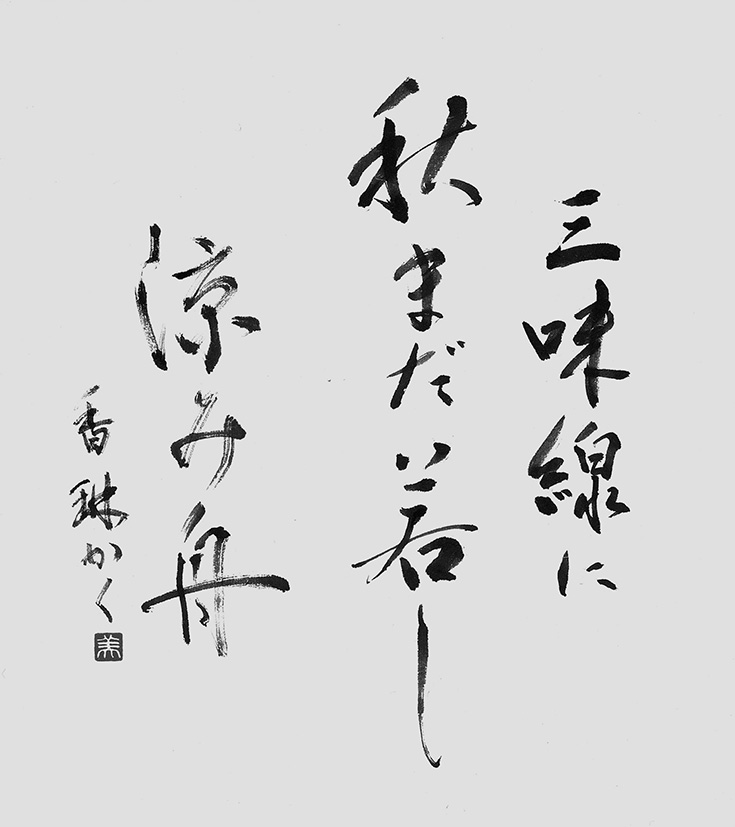 三味線に
秋まだ若し
涼み舟
香琳かく
美